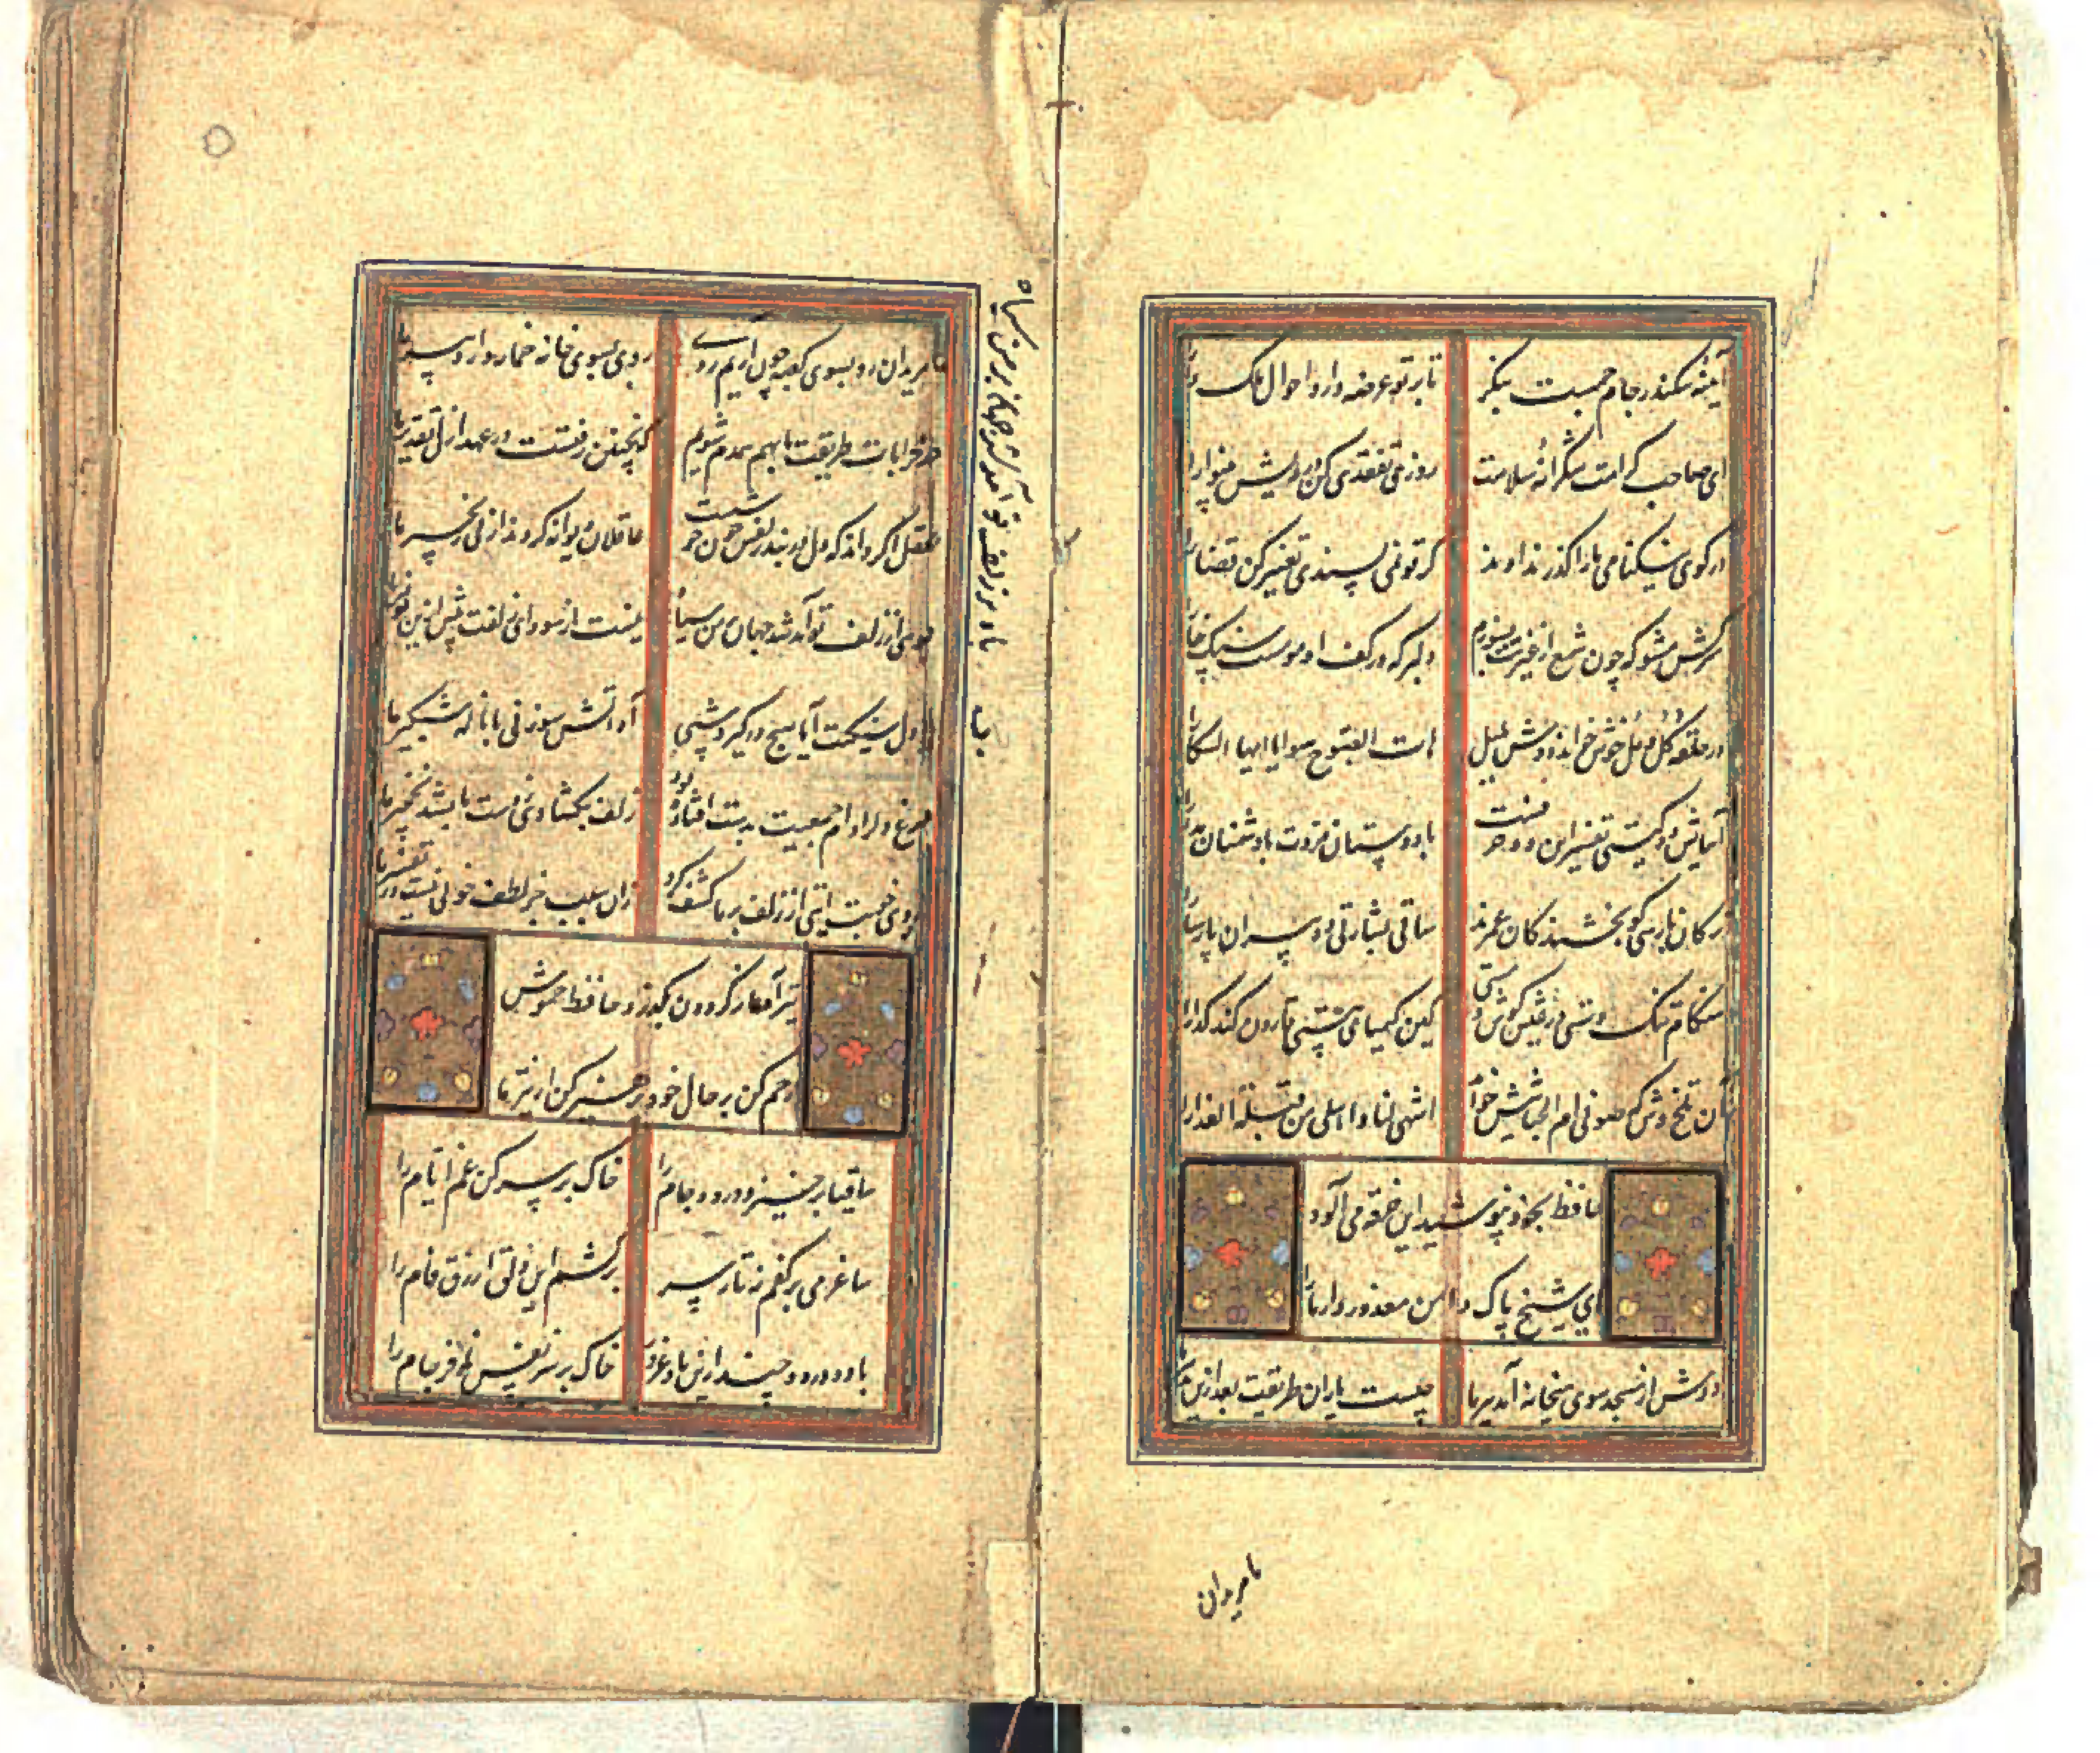 آیینه سکندر جام جمست بنگر
تا بر تو عرضه دارد احوال ملک دارا
ای صاحب کرامت شکرانه سلامت
روزی تفقدی کن درویش بینوا را
در کوی نیکنامی ما را گذر ندادند
گر تو نمی پسندی تغییر کن قضا را
سرکش مشو که چون شمع از غیرتت بسوزد
دلبر که در کف او مومست سنگ خارا
در حلقه گل و مل خوش خواند دوش بلبل
هات الصبوح هبوا یا ایها السکارا
آسایش دو گیتی تفسیر این دو حرفست
با دوستان مروت با دشمنان مدارا
ترکان پارسی گو بخشندگان عمرند
ساقی بشارتی ده پیران پارسا را
هنگام تنگ دستی در عیش کوش و مستی
کین کیمیای هستی قارون کند گدا را
آن تلخ وش که صوفی ام الخبایثش خواند
اشهی لنا و احلی من قبلة العذارا
حافظ بخود نپوشید این خرقه می آلود
ای شیخ پاک دامن معذور دار ما را
دوش از مسجد سوی میخانه آمد پیر ما
چیست یاران طریقت بعد ازین تدبیر ما
ما مریدان
ما مریدان رو بسوی کعبه چون آریم چون
روی بسوی خانه خمار دارد پیر ما
در خرابات طریقت ما بهم همدم شویم
کاینچنین رفتست در عهد ازل تقدیر ما
عقل اگر داند که دل در بند زلفش چون خوشست
عاقلان دیوانه گردند از پی زنجیر ما
بادی از زلف تو آمد شد جهان بر من سیاه
نیست از سودای زلفت بیش ازین توفیر ما
با دل سنگینت آیا هیچ درگیرد شبی
آه آتش سوزنی با ناله شبگیر ما
مرغ دل را دام جمعیت بدست افتاده بود
زلف بگشادی ز دست ما بشد نخجیر ما
روی خوبت آیتی از لطف بر ما کشف کرد
زان سبب جز لطف خوبی نیست در تفسیر ما
تیر آه ما ز گردون بگذرد حافظ خموش
رحم کن بر حال خود پرهیز کن از تیر ما
ساقیا برخیز و درده جام را
خاک بر سر کن غم ایام را
ساغر می بر کفم نه تا ز سر
برکشم این دلق ازرق فام را
باده درده چند ازین باد غرور
خاک بر سر نفس نافرجام را
باد بر زلف تو آمد شد جهان بر من سیاه